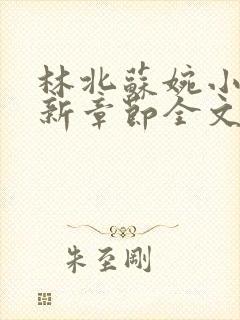 林北蘇婉小
新章節全文
朱至剛